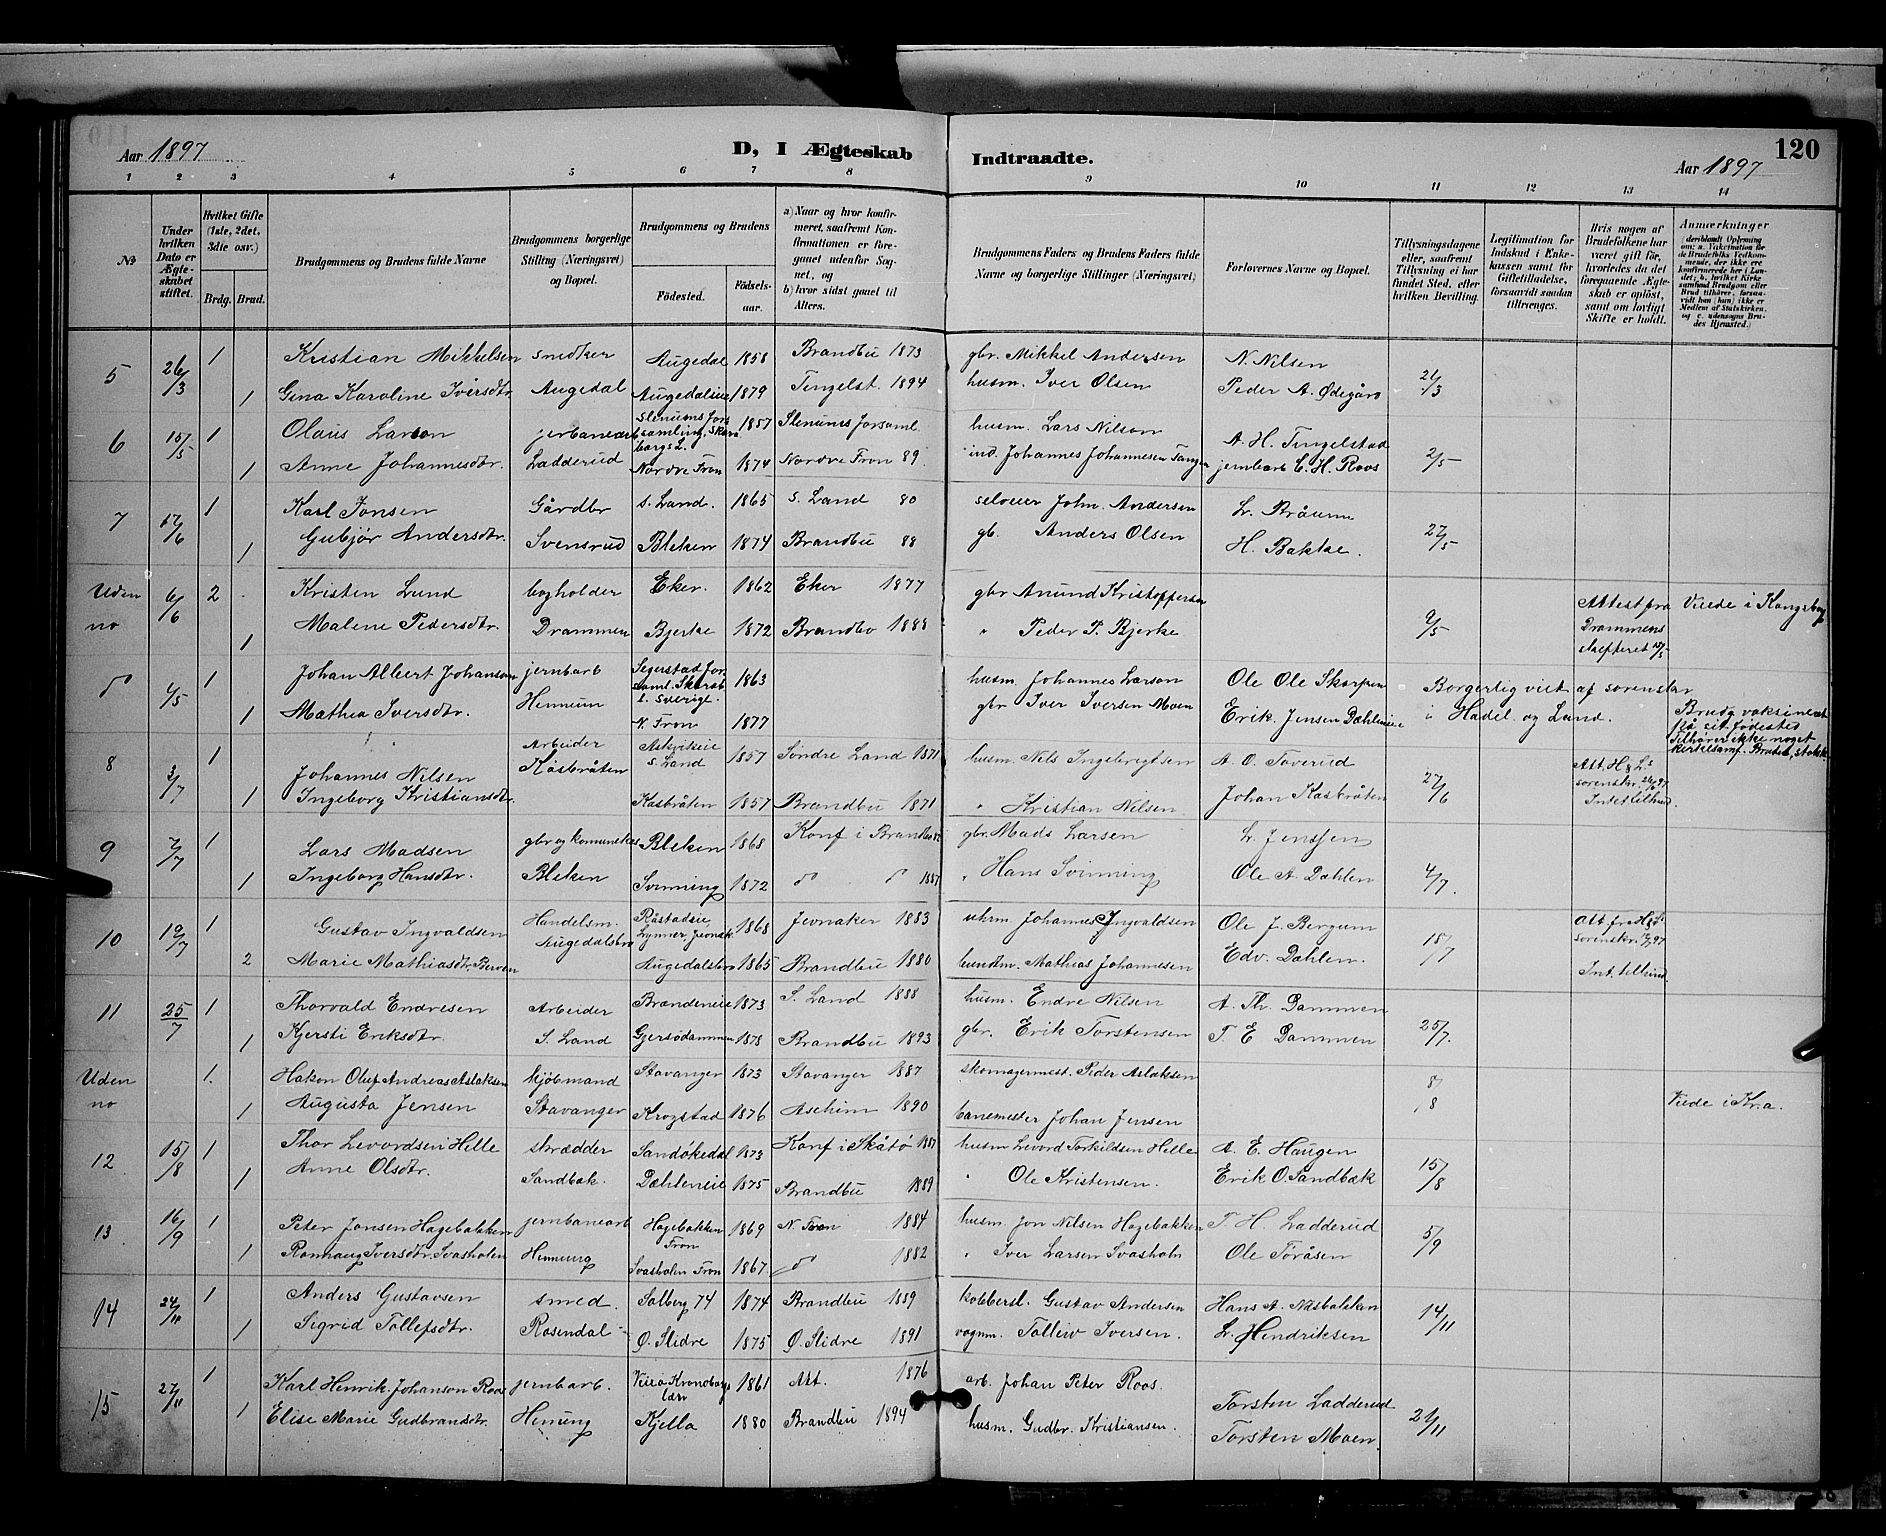 Aar 1897
D, I Ægteskab
Indtraadte.
Aar 1897
120
1 2 3 4 5 6 7 8 9 10 11 12 13 14
№
Under hvilken Dato er Ægteskabet stiftet.
Hvilket Gifte (1ste, 2det, 3die osv.)
Brdg. Brud.
Brudgommens og Brudens fulde Navne
Brudgommens borgerlige Stilling (Næringsvei) og Bopæl.
Brudgommens og Brudens
Födested.
Födselsaar.
a) Naar og hvor konfirmeret, saafremt Konfirmationen er foregaaet udenfor Sognet, og
b) hvor sidst gaaet til Alters.
Brudgommens Faders og Brudens Faders fulde Navne og borgerlige Stillinger (Næringsvei)
Forlovernes Navne og Bopæl.
Tillysningsdagene eller, saafremt Tillysning ei har fundet Sted, efter hvilken Bevilling.
Legitimation for Indskud i Enkekassen samt for Giftetilladelse, forsaavidt saadan tiltrænges.
Hvis nogen af Brudefolkene har været gift för, hvorledes da det foregaaende Ægteskab er oplöst, samt om lovligt Skifte er holdt.
Anmærkninger
5 26/3 1 Kristian Mikkelsen smedker Augedal 1858 Brandbu 1873 gbr. Mikkel Andersen N. Nilsen 21/3
1 Gina Karoline Iversdtr. Augedal Augedalseie 1879 Tingelst. 1894 husm. Iver Olsen Peder A. Ødegård
6 15/5 1 Olaus Larson jerbanearb Stenums forsamling, Skarabergs L. 1857 Stenums forsaml. husm. Lars Nilson A. H. Tingelstad 2/5
1 Anne Johannesdtr. Ladderud Nordre Fron 1874 Nordre Fron 89 ind. Johannes Johannesen Tangen jernbarb C. H. Roos
7 17/6 1 Karl Jonsen Gårdbr S. Land. 1865 S. Land 80 seloeier John Andersen L. Bråum 27/5
1 Gubjør Andersdtr. Svensrud Bleken 1874 Brandbu 88 gb. Anders Olsen H. Bakke.
Uden no 6/6 2 Kristen Lund bogholder Eker. 1862 Eker 1877 gbr Anund Kristoffersen 9/5 Attest fra Drammens skifteret Viede i Kongsberg
1 Malene Pedersdtr. Drammen Bjerke 1872 Brandbo 1888 " Peder P. Bjerke
do 4/5 1 Johan Albert Johanson jernbarb Segerstad forsaml. Skarab. l. Sverige. 1863 husm. Johannes Larson Ole Ole Skarpen Borgerlig viet af sorenskr
1 Mathea Iversdtr. Hennum N. Fron 1877 gbr Iver Iversen Moen Erik Jensen Dæhlineie i Hadel. og Land. Brudg vaksineret på sit fødested Tilhører ikke noget kirkesamf. Bruden, statsk
8 3/7 1 Johannes Nilsen Arbeider Askvikeie S. Land 1857 Søndre Land 1871 husm. Nils Ingebrigtsen A. O. Toverud 27/6 Att. H & L s sorenskr. 26/6 97 Intet til hind.
1 Ingeborg Kristiansdtr. Kasbråten Kasbråten 1857 Brandbu 1871 " Kristian Nilsen Johan Kasbråten
9 7/7 1 Lars Madsen gbr og komunekas Bleken 1868 Konf i Brandbu 82 gbr. Mads Larsen L. Jenssen 4/7
1 Ingeborg Hansdtr. Bleken Svinning 1872 do do 1887 " Hans Svinning Ole A. Dæhlen
10 19/7 1 Gustav Ingvaldsen Handelsm. Råstadeie Lynner, Jevnak. 1868 Jevnaker 1883 uhrm. Johannes Ingvaldsen Ole J. Bergum 18/7 Att. fr H & L sorenskr. 97 Int. til hind.
2 Marie Mathiasdtr. Berven Augedalsbro Augedalsbro 1865 Brandbu 1880 bundtm. Mathias Johannesen Edv. Dæhlen.
11 25/7 1 Thorvald Endresen Arbeider Brandeneie 1873 S. Land 1888 husm. Endre Nilsen A. Th. Dammen 25/7
1 Kjersti Eriksdtr. S. Land Gjersødammen 1878 Brandbu 1893 gbr. Erik Torstensen T. E Dammen
Uden no 1 Hakon Oluf Andreas Aslaksen kjøbmand Stavanger 1873 Stavanger 1887 skomagermest. Peder Aslaksen 8/8 Viede i Kr.a.
1 Augusta Jensen Stavanger Krogstad 1876 Aschim 1890 banemester Johan Jensen
12 15/8 1 Thor Levordsen Hille skrædder Sandøkedal 1873 Konf i Skåtø 1887 husm Levord Torkildsen Helle A. E. Haugen 15/8
1 Anne Olsdtr. Sandbæk. Dæhleneie 1875 Brandbu 1889 " Ole Kristensen. Erik O. Sandbæk
13 16/9 1 Peter Jonsen Hagebakken jernbanearb Hagebakken Fron 1869 N. Fron 1884 husm. Jon Nilsen Hagebakken T. H. Ladderud 5/9
1 Rannaug Iversdtr. Svasholen Hennung Svasholen Fron 1867 do 1882 " Iver Larsen Svasholn Ole Toråsen
14 24/11 1 Anders Gustavsen smed. Solberg 74 1874 Brandbu 1889 kobbersl. Gustav Andersen Hans A. Næsbakken 14/11
1 Sigrid Tollefsdtr. Rosendal Ø. Slidre 1875 Ø. Slidre 1891 vognm. Tollew Iversen. L. Hendriksen
15 27/11 1 Karl Henrik Johanson Roos jernbarb. Kronobergs læn 1861 Att. 1876 arb. Johan Peter Roos. Torsten Ladderud 21/11
1 Elise Marie Gudbrandsdtr. Henung Kjella 1880 Brandbu 1894 husm. Gudbr. Kristiansen. Torsten Moen.